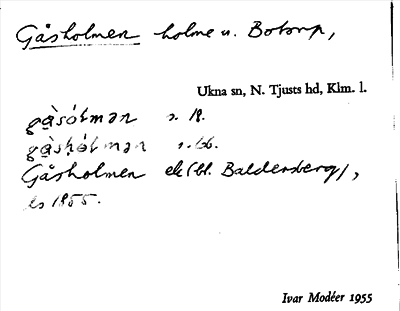 Gåsholmen holme u. Botorp,
Ukna sn, N. Tjusts hd, Klm. l.
s. 18.
s. 66.
Gåsholmen ek (bl. Baldersberg),
es 1855.
Ivar Modéer 1955